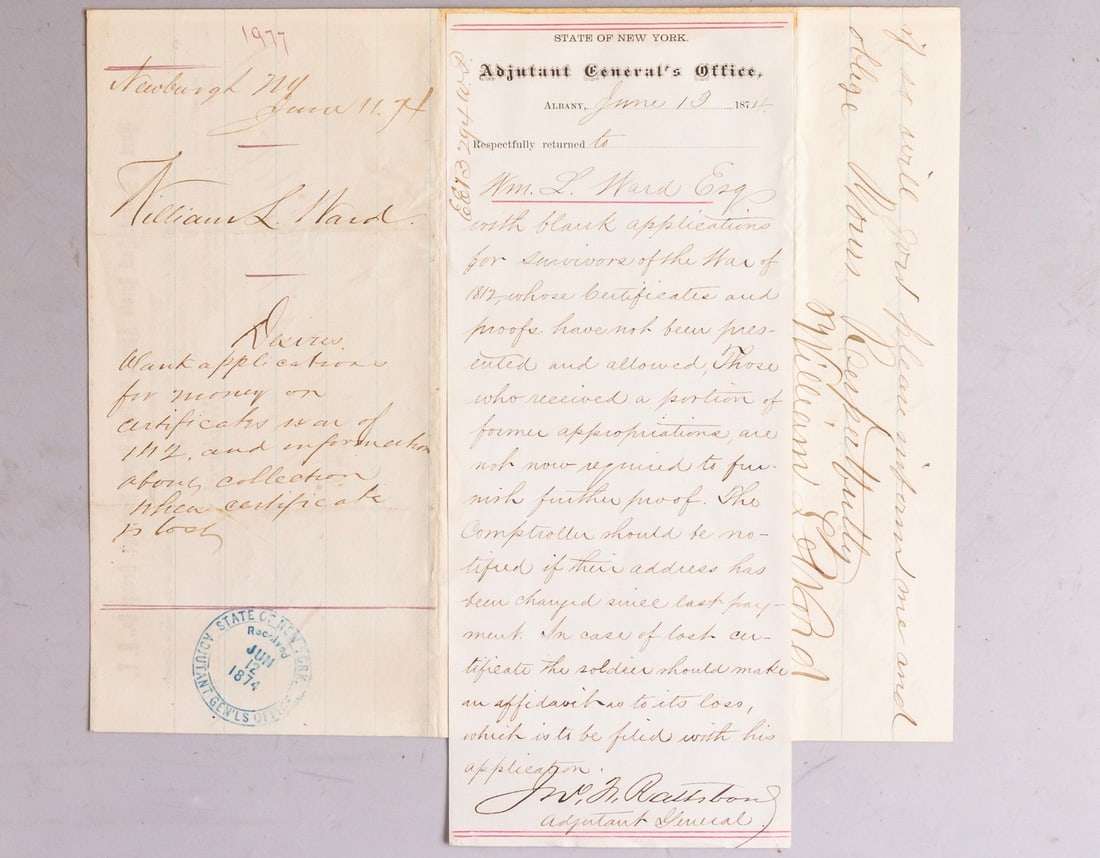 1977
Newburgh NY
June 11. 74
William L. Ward.
Desires
blank applications
for money on
certificates war of
1812, and information
about collection
when certificate
is lost
STATE OF NEW YORK.
ADJUTANT GEN'LS OFFICE
Received
JUN
12
1874
STATE OF NEW YORK.
Adjutant General's Office,
ALBANY, June 13 1874.
Respectfully returned to
Wm. L. Ward Esq
with blank applications
for survivors of the War of
1812, whose Certificates and
proofs have not been pres-
ented and allowed, Those
who received a portion of
former appropriations, are
not now required to fur-
nish further proof. The
Comptroller should be no-
tified if their address has
been changed since last pay-
ment. In case of lost cer-
tificate the soldier should make
an affidavit as to its loss,
which is to be filed with his
application.
Jno. F. Rathbone
Adjutant General.
if so will you please inform me and
oblige Yours Respectfully
William L Ward